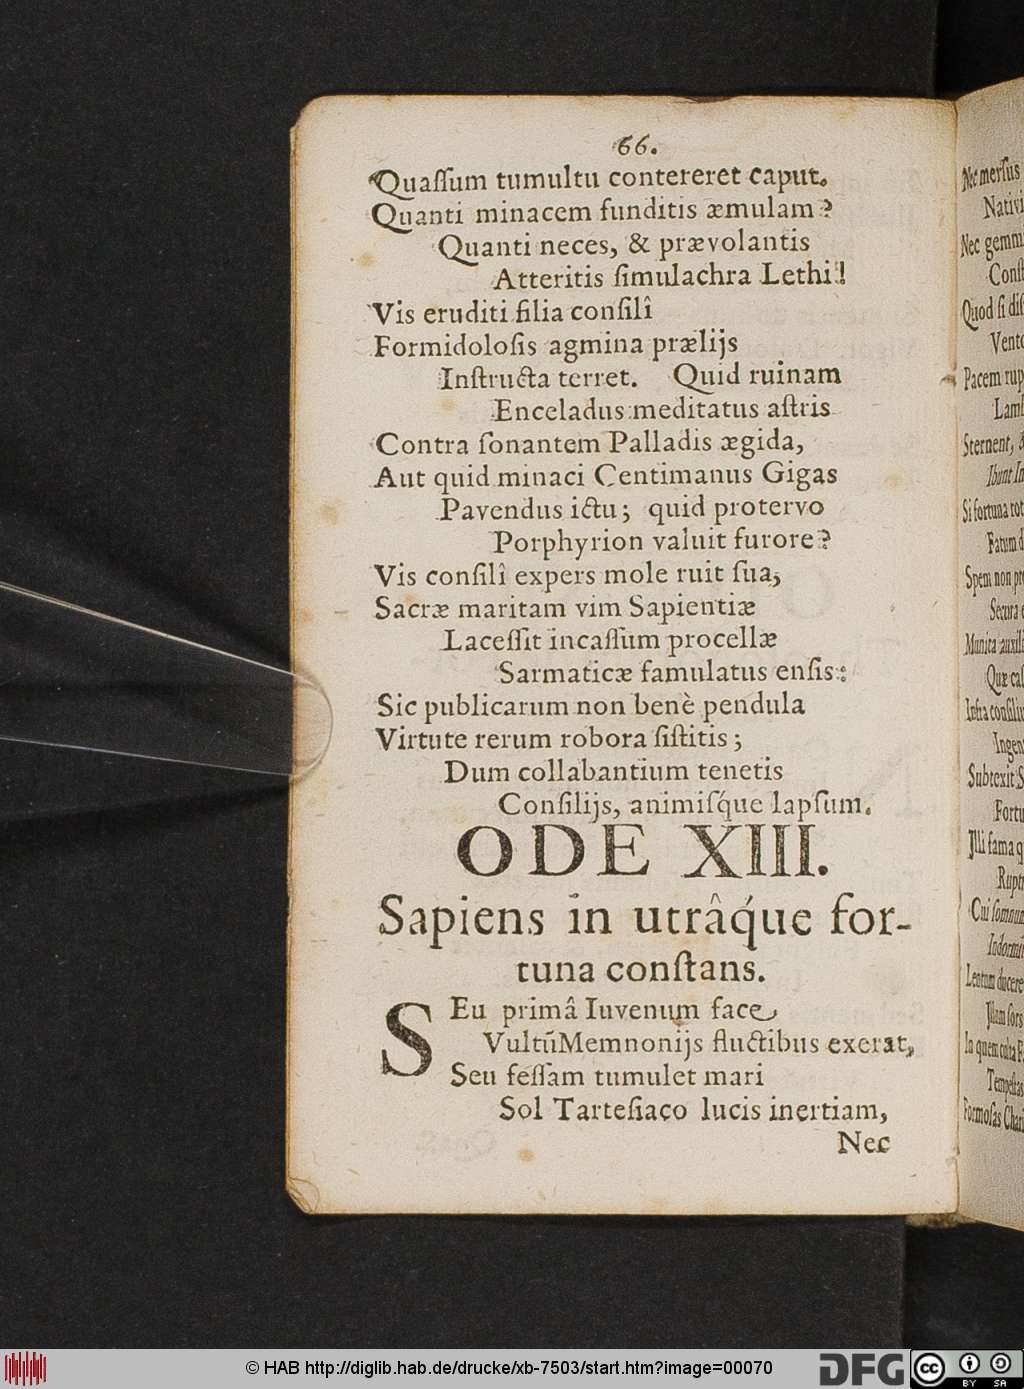 66.
Quaſſum tumultu contereret caput.
Quanti minacem funditis æmulam?
Quanti neces, & prævolantis
Atteritis ſimulachra Lethi!
Vis eruditi filia conſilî
Formidoloſis agmina prælijs
Inſtructa terret. Quid ruinam
Enceladus meditatus aſtris
Contra ſonantem Palladis ægida,
Aut quid minaci Centimanus Gigas
Pavendus ictu; quid protervo
Porphyrion valuit furore?
Vis conſilî expers mole ruit ſua,
Sacræ maritam vim Sapientiæ
Laceſſit incaſſum procellæ
Sarmaticæ famulatus enſis:
Sic publicarum non benè pendula
Virtute rerum robora ſiſtitis;
Dum collabantium tenetis
Conſilijs, animiſq́ue lapſum.
ODE XIII.
Sapiens in utrâq́ue for-
tuna conſtans.
SEu primâ Iuvenum face
Vultũ Memnonijs fluctibus exerat,
Seu feſſam tumulet mari
Sol Tarteſiaco lucis inertiam,
Nec
Nec merſus
Nec gemm
Quod ſi diſ
Pacem rup
Sternent,
Si fortuna tot
Spem non
Munita
Ingen
Subtexit S
Fortu
Illi fama q
Cui ſomnum
Lentum ducere
In quem
Formoſas Char
© HAB http://diglib.hab.de/drucke/xb-7503/start.htm?image=00070
DFG
cc
BY SA